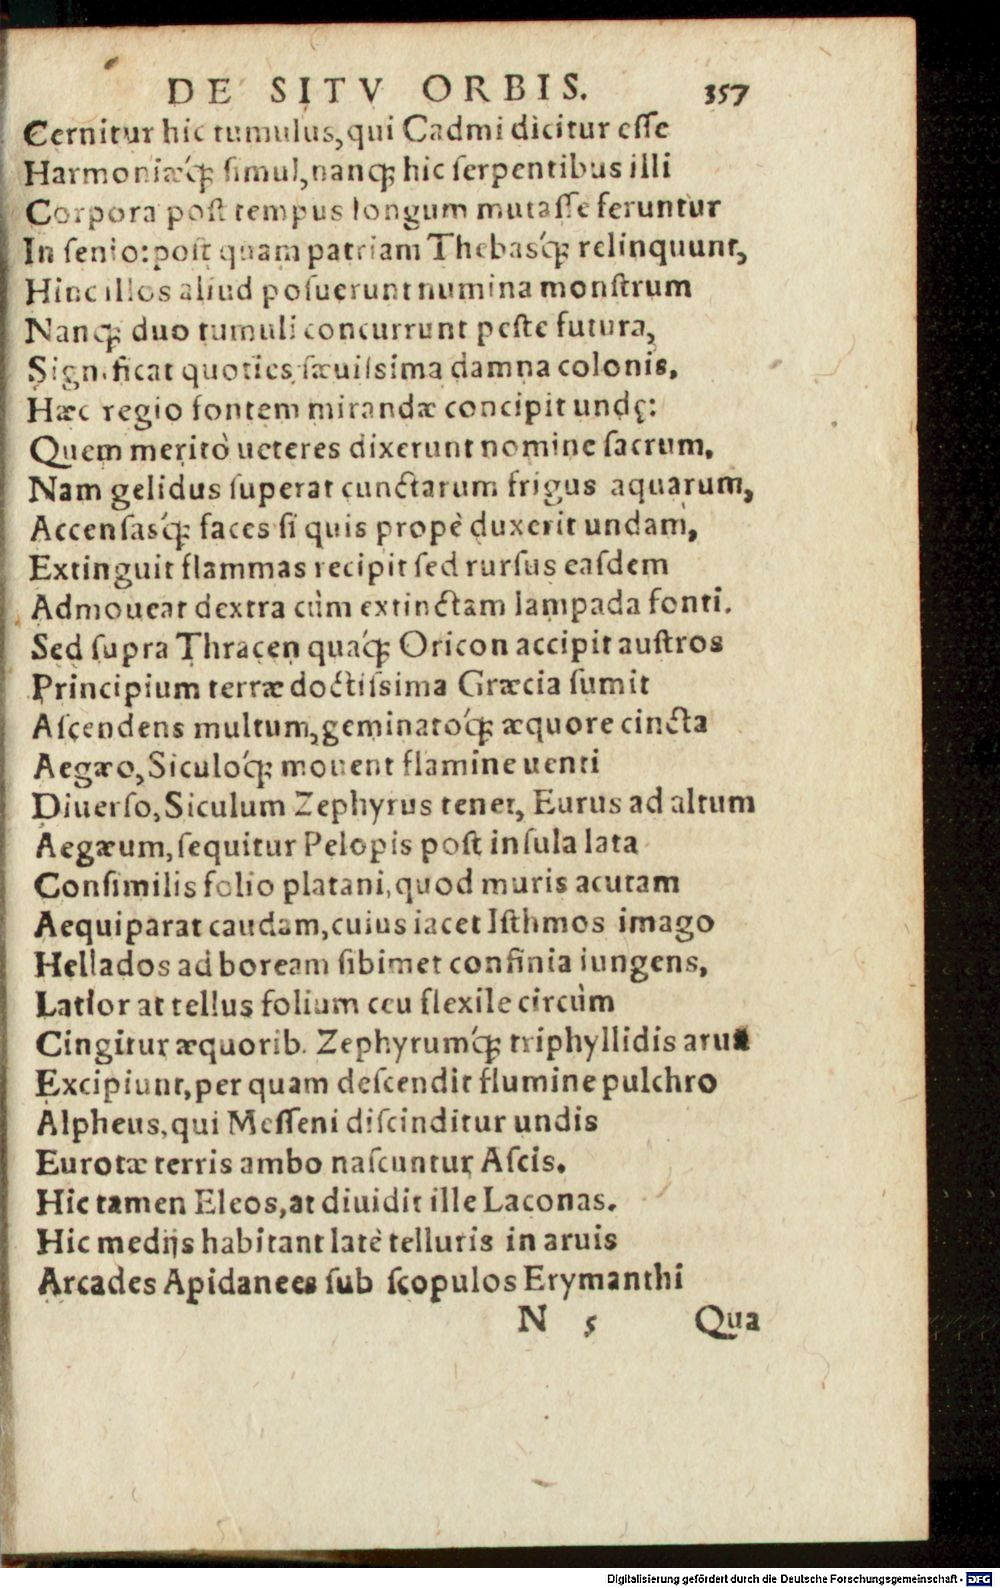 DE SITV ORBIS. 357
Cernitur hic tumulus, qui Cadmi dicitur esse
Harmoniæq́; simul, nanq; hic serpentibus illi
Corpora post tempus longum mutasse feruntur
In senio: post quam patriam Thebasq́; relinquunt,
Hinc illos aliud posuerunt numina monstrum
Nanq; duo tumuli concurrunt peste futura,
Significat quoties sæuissima damna colonis.
Hæc regio fontem mirandæ concipit undę:
Quem meritò ueteres dixerunt nomine sacrum.
Nam gelidus superat cunctarum frigus aquarum,
Accensasq́; faces si quis propè duxerit undam,
Extinguit flammas recipit sed rursus easdem
Admoueat dextra cùm extinctam lampada fonti.
Sed supra Thracen quaq́; Oricon accipit austros
Principium terræ doctissima Græcia sumit
Ascendens multum, geminatoq́; æquore cincta
Aegæo, Siculoq́; mouent flamine uenti
Diuerso, Siculum Zephyrus tenet, Eurus ad altum
Aegæum, sequitur Pelopis post insula lata
Consimilis folio platani, quod muris acutam
Aequiparat caudam, cuius iacet Isthmos imago
Hellados ad boream sibimet confinia iungens,
Latior at tellus folium ceu flexile circùm
Cingitur æquorib. Zephyrumq́; triphyllidis arua
Excipiunt, per quam descendit flumine pulchro
Alpheus, qui Messeni discinditur undis
Eurotæ terris ambo nascuntur Ascis.
Hic tamen Eleos, at diuidit ille Laconas.
Hic medijs habitant latè telluris in aruis
Arcades Apidanees sub scopulos Erymanthi
N 5 Qua
Digitalisierung gefördert durch die Deutsche Forschungsgemeinschaft - DFG